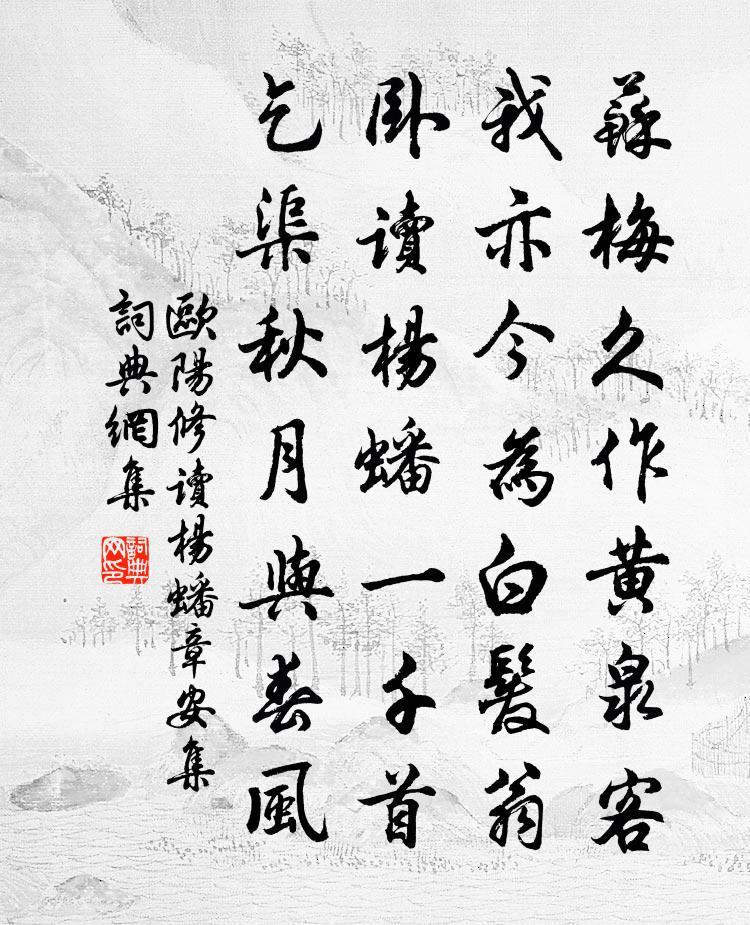 蘇梅久作黄泉客
我亦今為白髮翁
卧讀楊蟠一千首
乞渠秋月與春風
歐陽修讀楊蟠章安集
詞典網集
詞典
网印